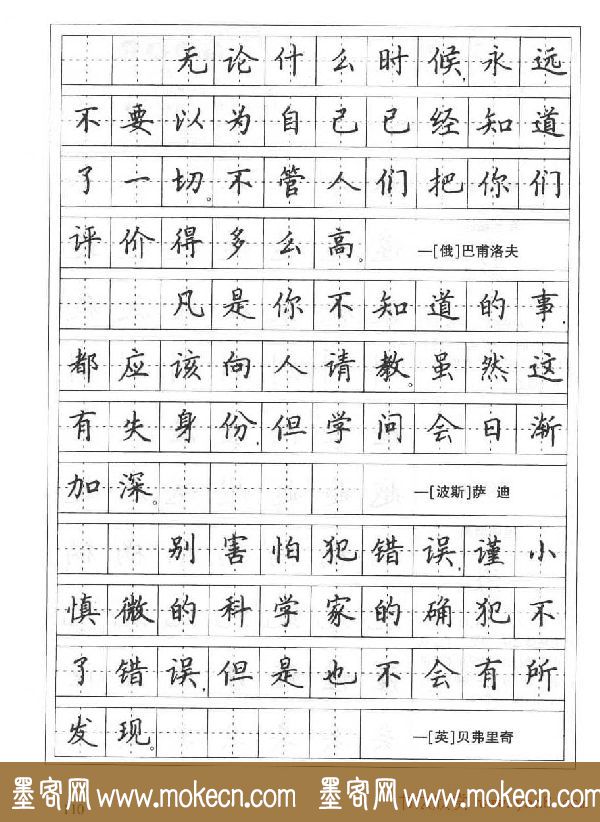 无论什么时候,永远
不要以为自己已经知道
了一切。不管人们把你们
评价得多么高。 —[俄]巴甫洛夫
凡是你不知道的事,
都应该向人请教。虽然这
有失身份,但学问会日渐
加深。 —[波斯]萨 迪
别害怕犯错误,谨小
慎微的科学家的确犯不
了错误,但是也不会有所
发现。 —[英]贝弗里奇
墨客网 www.mokecn.com 墨客网 www.mokecn.com
110